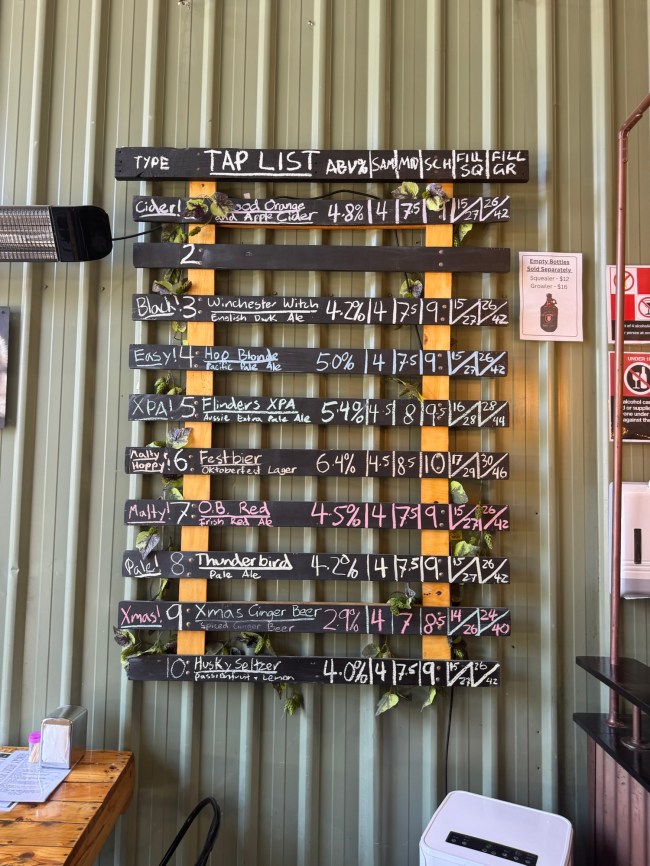 TYPE TAP LIST ABV% SAM MID SCH FILL SQ FILL GR
Cider! Orange 4.8% 4 7.5 9 15/27 26/42
and Apple Cider
2
Black! 3: Winchester Witch 4.2% 4 7.5 9 15/27 26/42
English Dark Ale
Easy! 4: Hop Blonde 5.0% 4 7.5 9 15/27 26/42
Pacific Pale Ale
XPA! 5: Flinders XPA 5.4% 4.5 8 9.5 16/28 28/44
Aussie Extra Pale Ale
Malty Hoppy! 6: Festbier 6.4% 4.5 8.5 10 17/29 30/46
Oktoberfest Lager
Malty! 7: O.B. Red 4.5% 4 7.5 9 15/27 26/42
Irish Red Ale
Pale! 8: Thunderbird 4.2% 4 7.5 9 15/27 26/42
Pale Ale
Xmas! 9: Xmas Ginger Beer 2.9% 4 7 8.5 14/26 24/40
Spiced Ginger Beer
10: Husky Seltzer 4.0% 4 7.5 9 15/27 26/42
Passionfruit + Lemon
Empty Bottles
Sold Separately
Squealer - $12
Growler - $16
UNDER 18